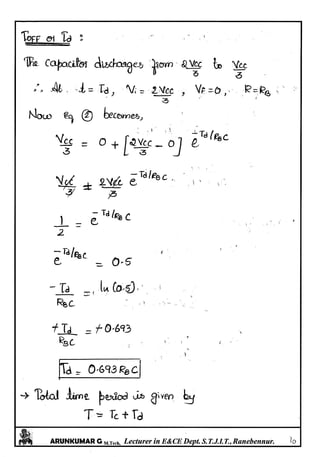 TOFF or Td :
The capacitor discharges from 2Vcc/3 to Vcc/3
∴ At t = Td, Vi = 2Vcc/3, VF = 0, R = RB
Now eq ② becomes,
Vcc/3 = 0 + [2Vcc/3 - 0] e^(-Td/RBC)
Vcc/3 = 2Vcc/3 e^(-Td/RBC)
1/2 = e^(-Td/RBC)
e^(-Td/RBC) = 0.5
-Td/RBC = ln (0.5)
+Td/RBC = +0.693
Td = 0.693 RBC
→ Total time period is given by
T = Tc + Td
ARUNKUMAR G M.Tech, Lecturer in E&CE Dept. S.T.J.I.T., Ranebennur. 10